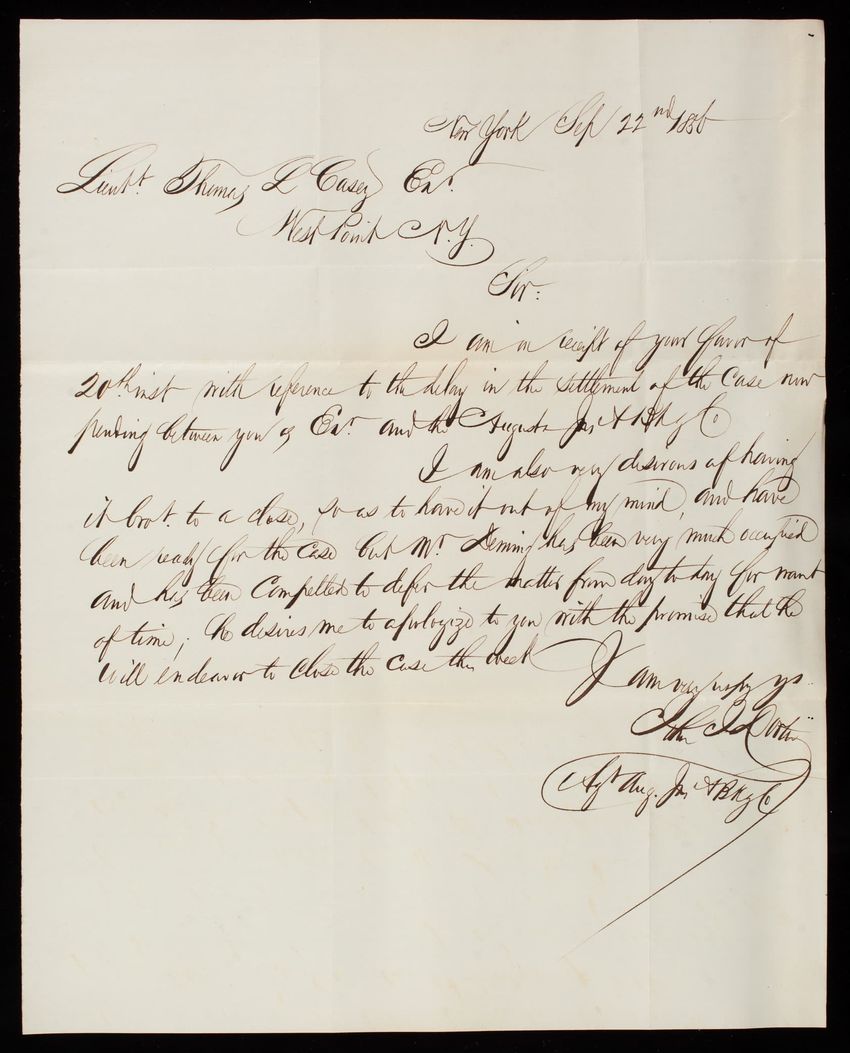 New York Sep 22nd 1856
Lieut. Thomas L Casey Exr.
West Point N.Y.
Sir:
I am in receipt of your favor of
20th inst with reference to the delay in the settlement of the Case now
pending between you as Exr. and the Augusta Ins & Bkg Co
I am also very desirous of having
it brot. to a close, so as to have it out of my mind, and have
been ready for the case but Mr. Deming has been very much occupied
and has been Compelled to defer the matter from day to day for want
of time; he desires me to apologize to you with the promise that he
will endeavor to close the case this week
I am very respy yrs
John J
Agt Aug. Ins & Bkg Co